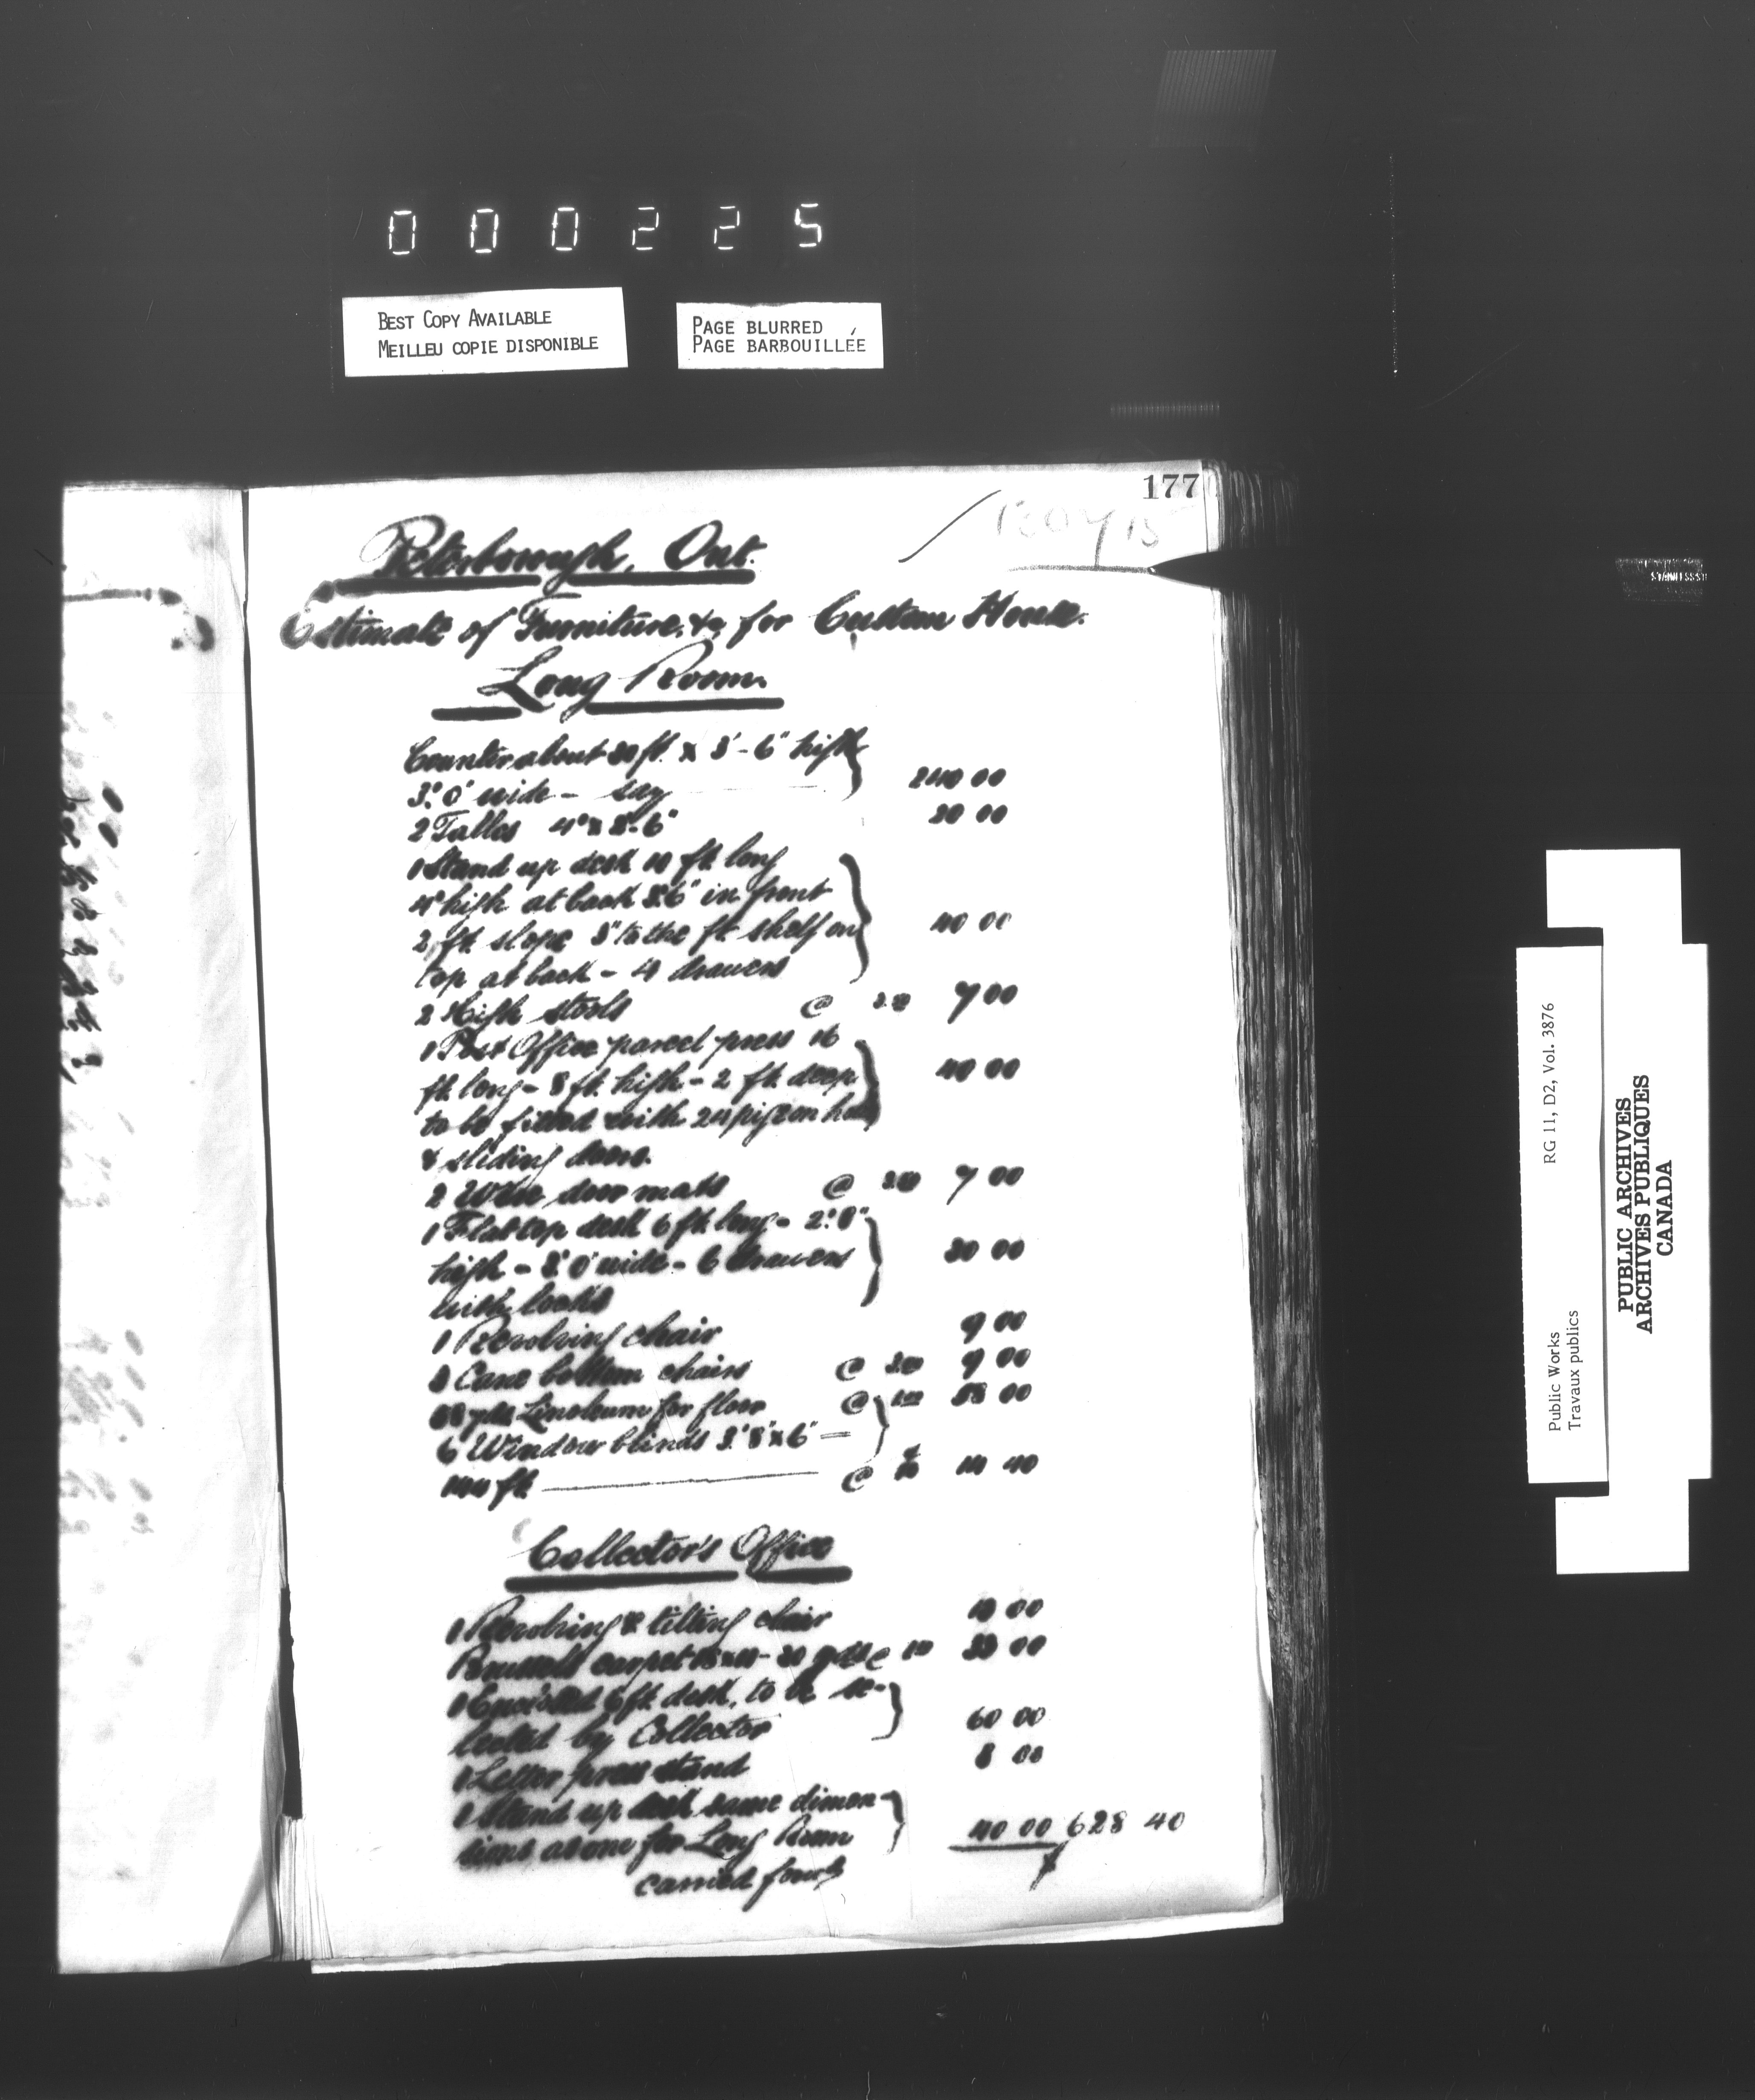 000225
BEST COPY AVAILABLE
MEILLEU COPIE DISPONIBLE
PAGE BLURRED
PAGE BARBOUILLÉE
177
Peterborough, Ont.
Estimate of Furniture, &c, for Custom House.
Long Room.
Counter about 30 ft. x 3'-6" high
3'.0" wide - say 240 00
2 Tables 4' x 2'-6" 20 00
1 Stand up desk 10 ft long
4' high at back 3'.6" in front
2 ft slope 3" to the ft shelf on 40 00
top at back - 4 drawers
2 High stools @ 3 50 7 00
1 Post Office parcel press 16
ft long - 8 ft. high - 2 ft deep 40 00
to be fitted with 24 pigeon holes
& sliding doors.
2 Wire door mats @ 3 50 7 00
1 Flat top desk 6 ft long - 2'.8"
high - 3'.0" wide - 6 drawers 30 00
with locks
1 Revolving chair 9 00
3 Cane bottom chairs @ 3 00 9 00
yds Linoleum for floor @ 1 00 00
6 Window blinds 3'.8" x 6' =
144 ft @ 10 14 40
Collector's Office
1 Revolving & tilting chair 10 00
Brussels carpet yds @ 00
6 ft. desk, to be se-
lected by Collector 60 00
1 Letter press stand 8 00
1 Stand up desk same dimen-
sions as one for Long Room 40 00 628 40
carried forwd
STAINLESS
Public Works
Travaux publics
RG 11, D2, Vol. 3876
PUBLIC ARCHIVES
ARCHIVES PUBLIQUES
CANADA